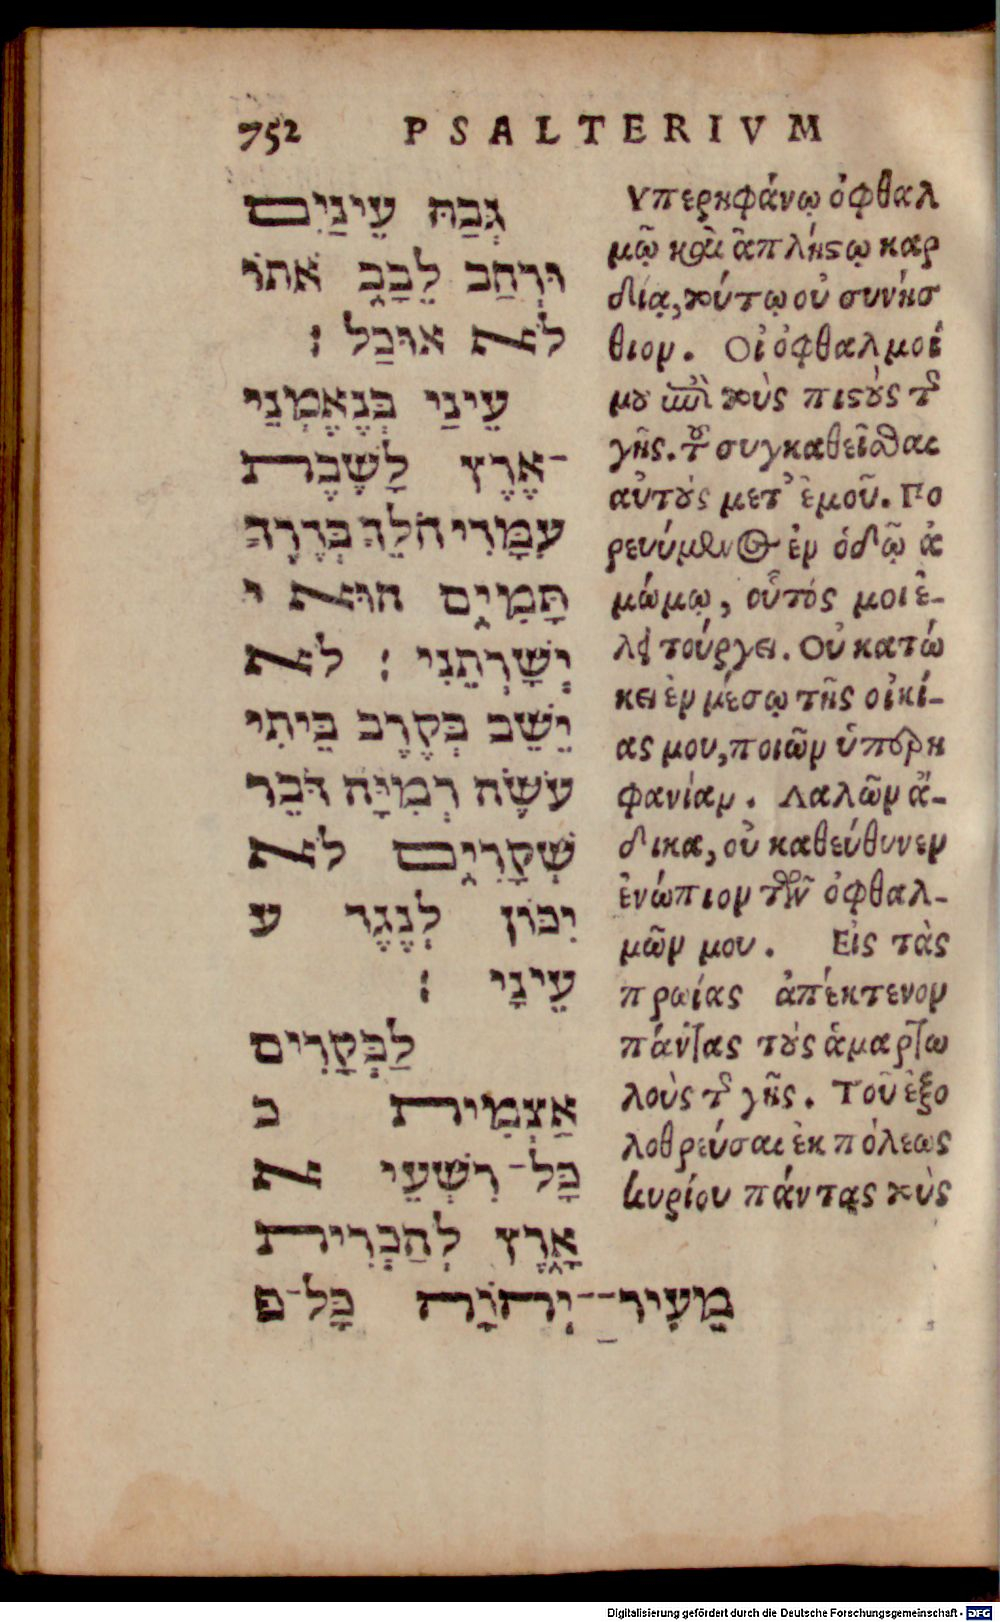 752 PSALTERIVM
גְּבַהּ עֵינַיִם
וּרְחַב לֵבָב אֹתוֹ
לֹא אוּכָל :
עֵינַי בְּנֶאֶמְנֵי
־אֶרֶץ לָשֶׁבֶת
עִמָּדִי הֹלֵךְ בְּדֶרֶךְ
תָּמִים הוּא י
יְשָׁרְתֵנִי : לֹא
יֵשֵׁב בְּקֶרֶב בֵּיתִי
עֹשֶׂה רְמִיָּה דֹּבֵר
שְׁקָרִים לֹא
יִכּוֹן לְנֶגֶד ע
עֵינָי :
לַבְּקָרִים
אַצְמִית כ
כָּל־רִשְׁעֵי א
אָרֶץ לְהַכְרִית
מֵעִיר־־יְהוָֹה כָּל־פ
Υπερηφάνῳ ὀφθαλ
μῷ καὶ ἀπλήςῳ καρ
δίᾳ, τούτῳ οὐ συνήσ
θιον. Οἱ ὀφθαλμοί
μου ἐπὶ τοὺς πιςοὺς τῆς
γῆς. τοῦ συγκαθεῖσθαι
αὐτοὺς μετ᾽ ἐμοῦ. Πο
ρευόμενος ἐν ὁδῷ ἀ
μώμῳ, οὗτός μοι ἐ-
λειτούργει. Οὐ κατώ
κει ἐν μέσῳ τῆς οἰκί-
ας μου, ποιῶν ὑπερη
φανίαν. Λαλῶν ἄ-
δικα, οὐ κατεύθυνεν
ἐνώπιον τῶν ὀφθαλ-
μῶν μου. Εἰς τὰς
πρωίας ἀπέκτενον
πάντας τοὺς ἁμαρτω
λοὺς τῆς γῆς. Τοῦ ἐξο
λοθρεύσαι ἐκ πόλεως
κυρίου πάντας τοὺς
Digitalisierung gefördert durch die Deutsche Forschungsgemeinschaft - DFG